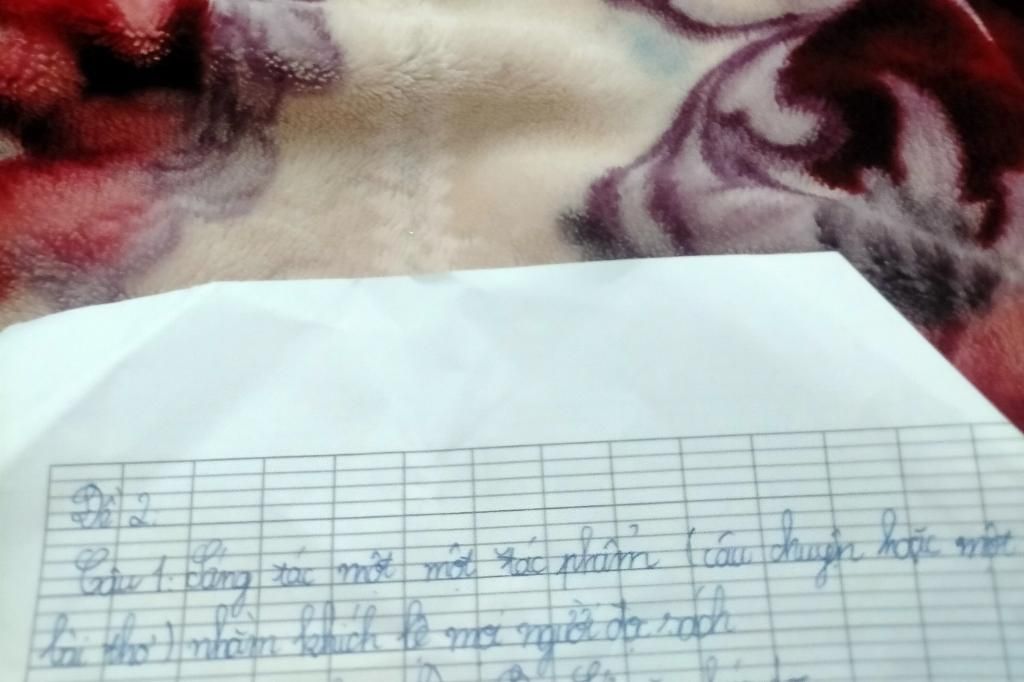 Đề 2.
Câu 1: Sáng tác một một tác phẩm (câu chuyện hoặc một
bài thơ) nhằm khích lệ mọi người đọc sách